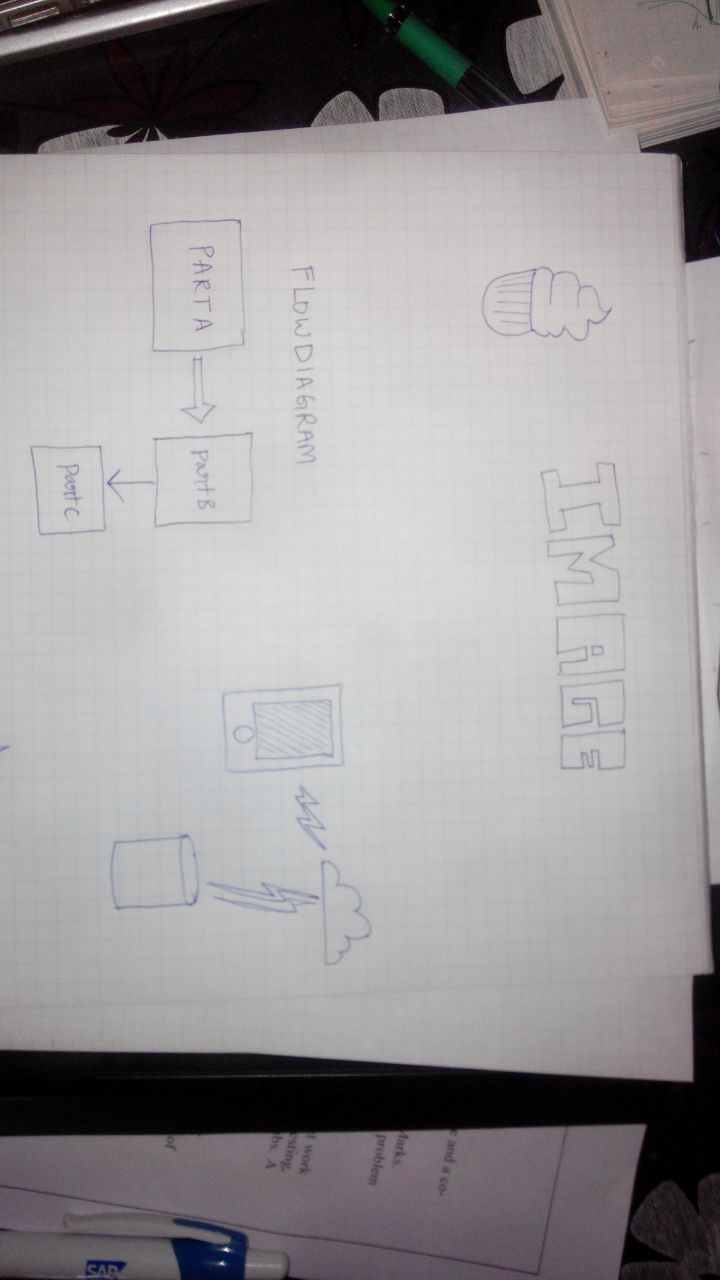 IMAGE
FLOWDIAGRAM
PARTA
PartB
PartC
e and a co-
Marks
problem
t work
esting,
bs. A
of
SAP